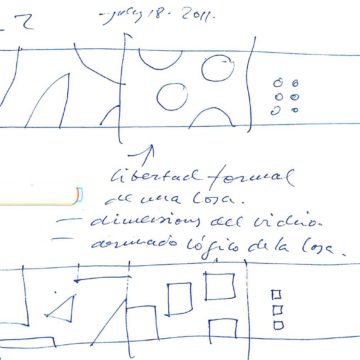 2
July 18. 2011.
libertad formal
de una losa.
— dimensions del vidrio.
— dormado lógico de la losa.